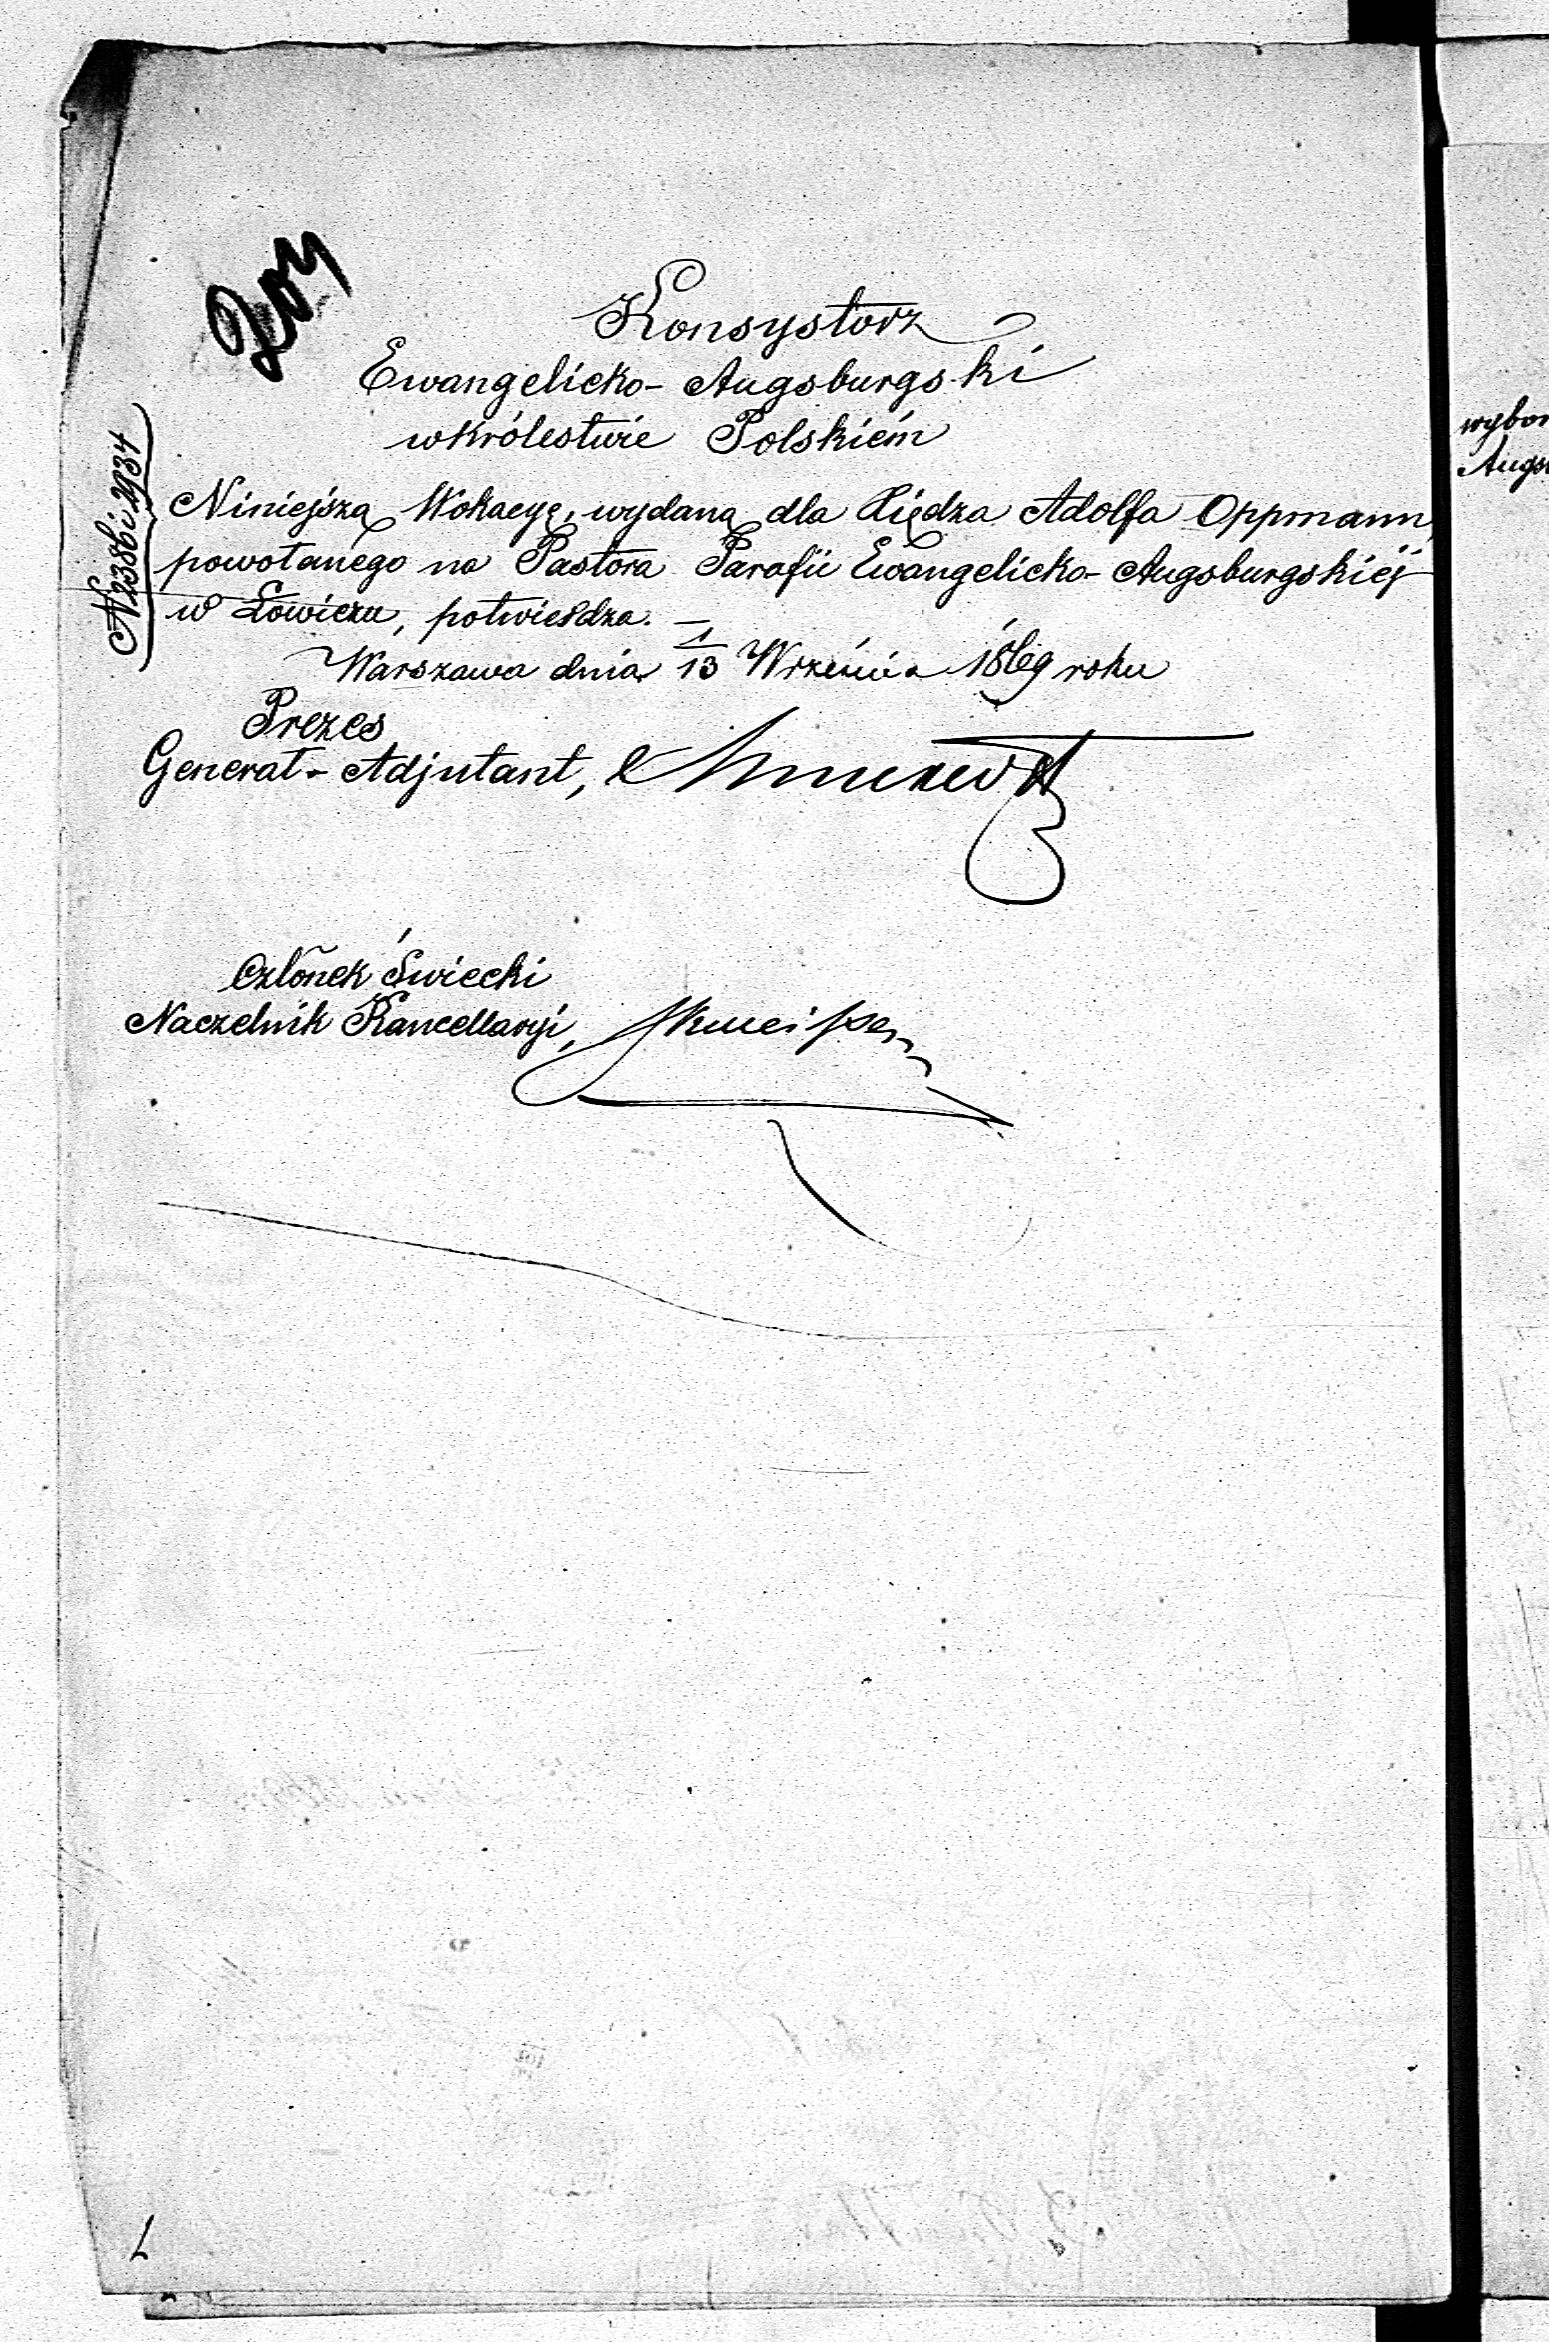 204
Konsystorz
Ewangelicko-Augsburgski
w Królestwie Polskiém
N 2386 i 2934
Niniejszą Wokacyę, wydaną dla Xiędza Adolfa Oppmann,
powołanego na Pastora Parafii Ewangelicko-Augsburgskiéj
w Łowiczu, potwierdza. —
Warszawa dnia 1/13 Września 1869 roku
Prezes
Generał-Adjutant,
Członek Świecki
Naczelnik Kancellaryi,
wybor
Augs